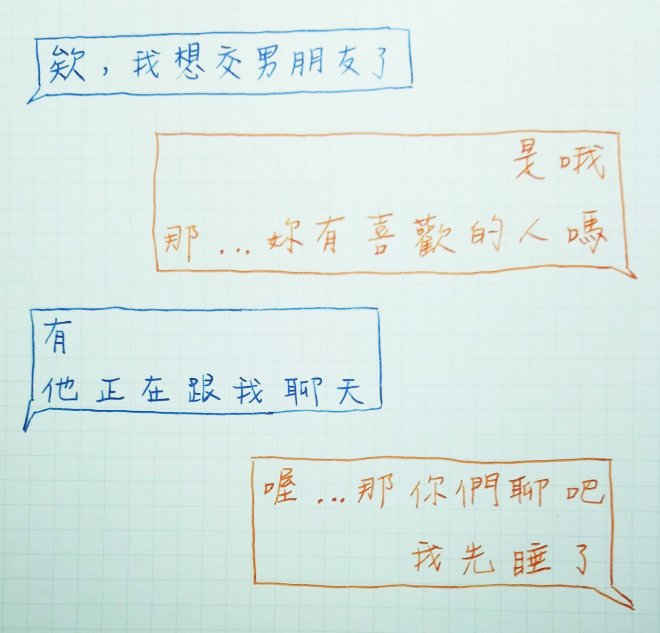 欸，我想交男朋友了
是哦
那...妳有喜歡的人嗎
有
他正在跟我聊天
喔...那你們聊吧
我先睡了